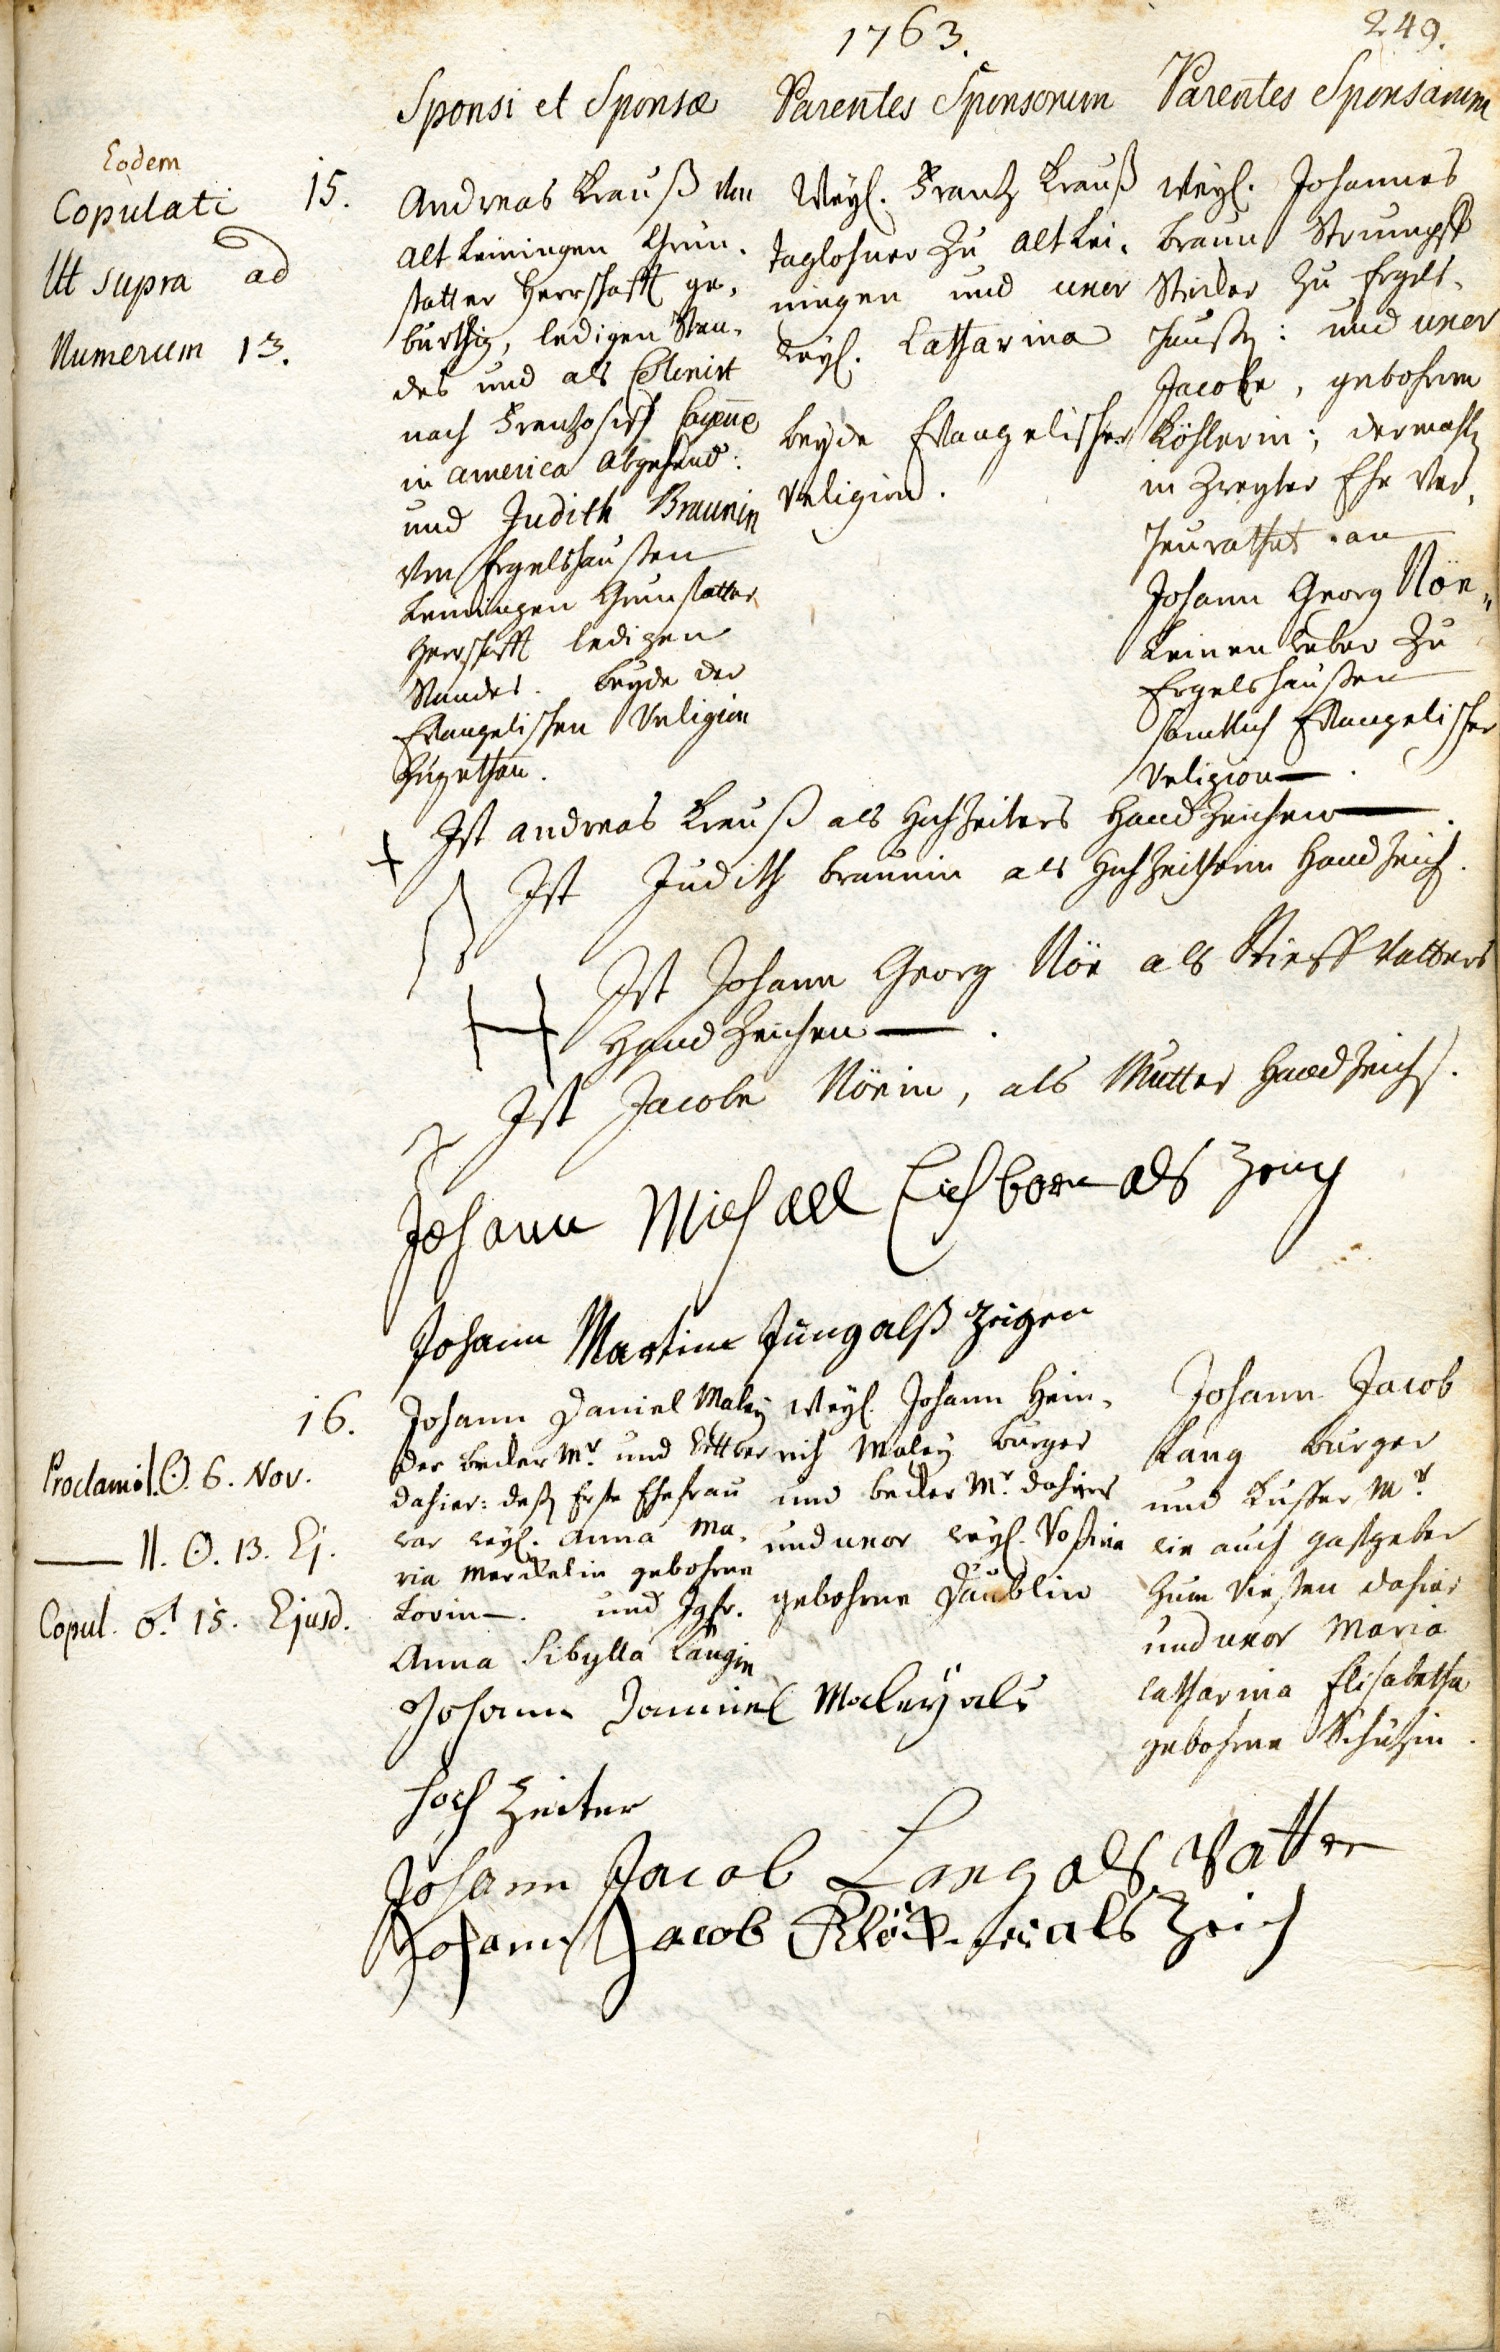 1763.
249.
Sponsi et Sponsæ
Parentes Sponsorum
Parentes Sponsarum
Eodem
Copulati
Ut supra ad
Numerum 13.
15.
Andreas Krauß von
Alt Leiningen Grün-
statter Herrschafft ge-
bürthig, ledigen Stan-
des und als Colonist
nach Frantzosisch Cayenne
in America abgehend:
und Judith Braunin
von Ergelshausen
Leiningen Grünstatter
Herrschafft ledigen
Standes. beyde der
Evangelischen Religion
zugethan.
Weyl. Frantz Krauß
Taglohner zu Alt Lei-
ningen und uxor
weyl. Catharina
beyde Evangelischer
Religion.
Weyl. Johannes
Braun Strumpff
Stricker zu Ergels-
hausen: und uxor
Jacobe, gebohrne
Köhlerin; dermahlen
in Zweyter Ehe ver-
heurathet an
Johann Georg Nöe,
Leinen Weber zu
Ergelshausen
samtlich Evangelischer
Religion.
+ Ist Andreas Krauß als Hochzeiters Handzeichen.
Ist Judith Braunin als Hochzeitherin Handzeich.
Ist Johann Georg Nöe als Stieff Vatters
Handzeichen.
Ist Jacobe Nöein, als Mutter Handzeich.
Johann Michael Eichborn als Zeug
Johann Martin Jung alß Zeigen
16.
Proclam. I. ☉. 6. Nov.
— II. ☉. 13. Ej.
Copul. ♂. 15. Ejusd.
Johann Daniel Maley
der Becker Mr. und Wittwer
dahier: deßen Erste Ehefrau
war weyl. Anna Ma-
ria Merckelin gebohrne
Lorin. und Jgfr.
Anna Sibylla Langin
Weyl. Johann Hein-
rich Maley Burger
und Becker Mr. dahier
und uxor weyl. Rosina
gebohrne Däublin
Johann Jacob
Lang Burger
und Kuffer Mr.
wie auch Gastgeber
zum Riesen dahier
und uxor Maria
Catharina Elisabetha
gebohrne Schützin.
Johann Danniel Maley als
Hoch Zeiter
Johann Jacob Lang als Vatter
Johann Jacob als Zeich